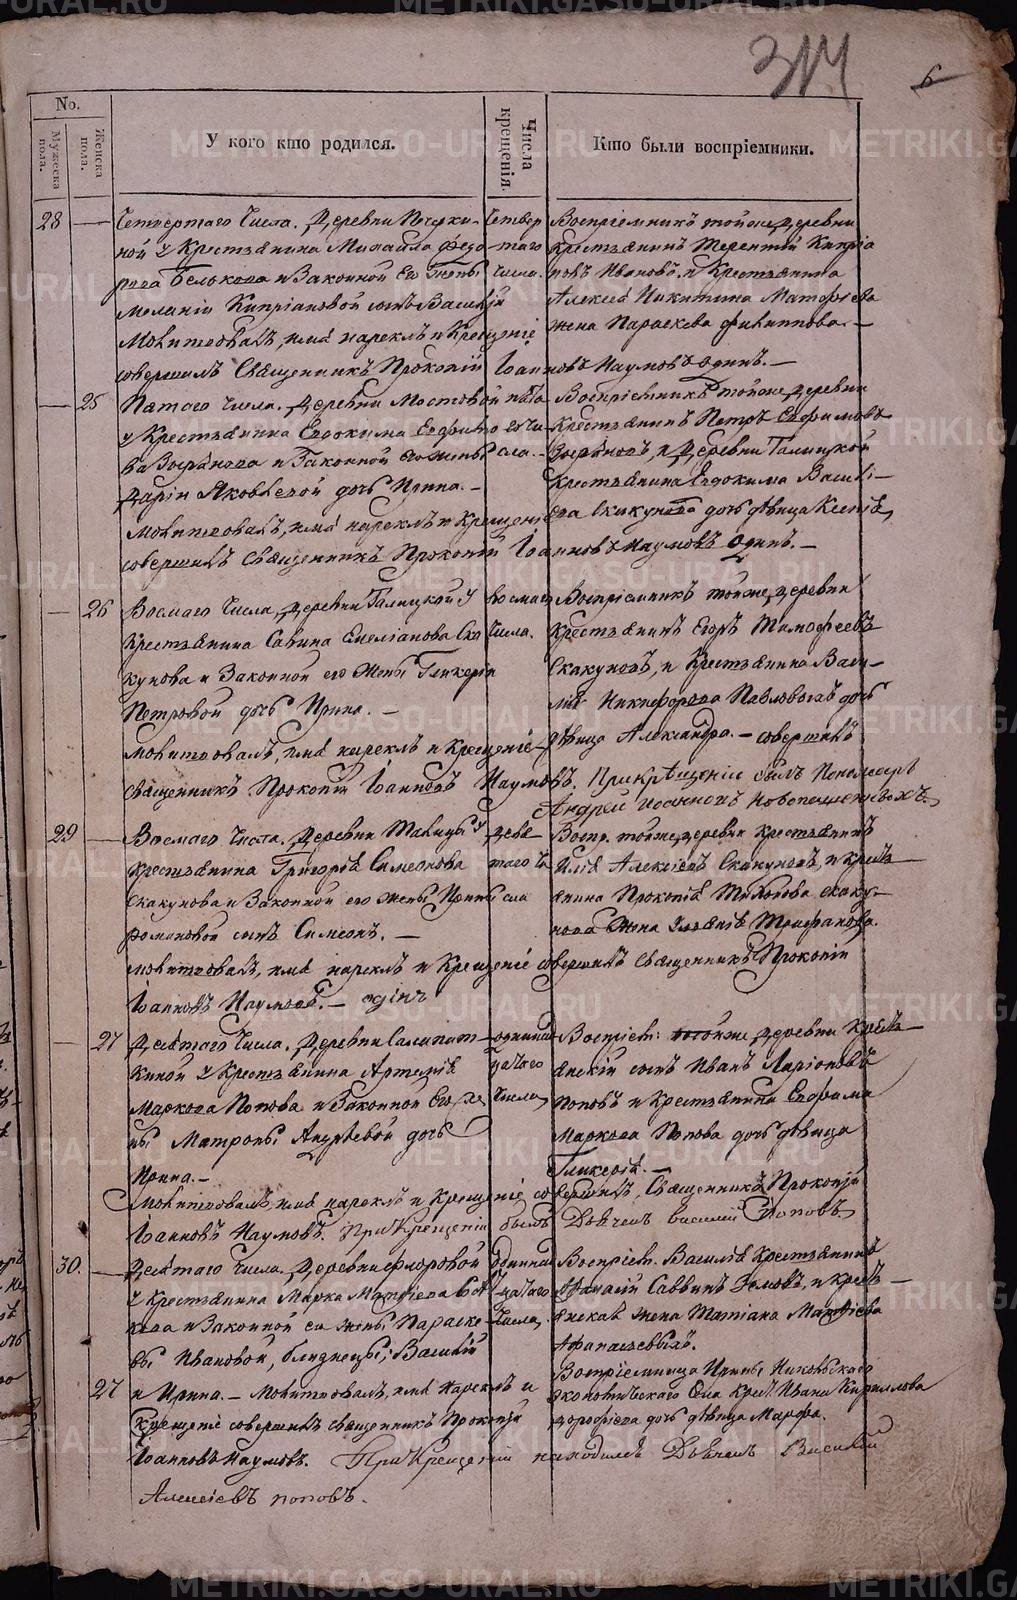 314
6
No.
Мужеска пола.
Женска пола.
У кого кто родился.
Числа крещенія.
Кто были воспріемники.
28
Четвертаго Числа. Деревни
ной у Крестьянина Михаила Федо
рова Белькова и Законной Его Жены
Меланіи Кипріановой сынъ Василій
Молитвовалъ, имя нареклъ и Крещеніе
совершилъ Священникъ Прокопій Іоанновъ Наумовъ Одинъ. —
Четвер
таго
Числа.
Воспріемникъ тойже деревни
Крестьянинъ Терентій Кипріа
новъ Ивановъ, и Крестьянина
Алексея Никитина Матфѣева
жена Параскева Филиппова. —
25
Пятаго Числа. Деревни Мостовой
у Крестьянина Евдокима Евфимо
ва и Законной Его жены
Даріи Яковлевой дочь Ирина. —
Молитвовалъ, имя нареклъ и Крещеніе
совершилъ Священникъ Прокопій Іоанновъ Наумовъ Одинъ. —
пята
го Чи
сла. —
Воспріемникъ тойже деревни
Крестьянинъ Петръ Евфимовъ
и Деревни Галицкой
Крестьянина Евдокима Василі—
ева Скакунова дочь дѣвица Ксенія,
26
Восмаго Числа, Деревни Галицкой у
Крестьянина Савина Емеліанова Ска
кунова и Законной его Жены Гликеріи
Петровой дочь Ирина. —
Молитвовалъ, имя нареклъ и Крещеніе
Священникъ Прокопій Іоанновъ Наумовъ. При Крѣщеніи былъ Пономарь
Восмаго
Числа.
Воспріемникъ тойже деревни
Крестьянинъ Егоръ Тимофеевъ
Скакуновъ, и Крестьянина Васи—
лія Никифорова Павловыхъ дочь
дѣвица Александра. — совершилъ
Андрей Иоанновъ
29
Восмаго Числа. Деревни Галицы у
Крестьянина Григорія Симеонова
Скакунова и Законной его Жены Ирины
Романовой сынъ Симеонъ. —
Молитвовалъ, имя нареклъ и Крещеніе совершилъ Священникъ Прокопій
Іоанновъ Наумовъ. — один
девя
таго Чи
сла
Воспр. тойже деревни Крестьянинъ
Илія Алексіевъ Скакуновъ, и крест
янина Прокопія Тихонова Скаку—
нова Жена Трифанова.
27
Десятаго Числа. Деревни
киной у Крестьянина Артемія
Маркова Попова и Законной Его же
ны Матроны Андрѣевой дочь
Ирина. —
Молитвовалъ, имя нареклъ и Крещеніе совершилъ, Священникъ Прокопій
Іоанновъ Наумовъ. При Крещеніи былъ Дьячекъ Василій Поповъ
одинна
цатаго
Числа,
Воспріем: тойже деревни Крест—
янскій сынъ Иванъ Ларіоновъ
Поповъ и Крестьянина Евфима
Маркова Попова дочь дѣвица
Гликерія. —
30.
Десятаго Числа. Деревни Флоровой
у Крестьянина Марка Матфѣева
и Законной его жены Параске—
вы Ивановой, близнецы, Василій
27
и Ирина. — Молитвовалъ, имя нареклъ и
Крещеніе совершилъ Священникъ Прокопій
Іоанновъ Наумовъ. При Крещеніи находился Дьячекъ Василій
Алексіевъ поповъ.
Одинна
цатаго
Числа,
Воспріем. Василія Крестьянинъ
Афанасій Саввинъ и крест—
янская жена Татіана Матфѣева
Афанасьевыхъ.
Воспріемница Ирины
Крест. Ивана Кириллова
Дорофіева дочь дѣвица Марфа.
METRIKI.GASO-URAL.RU